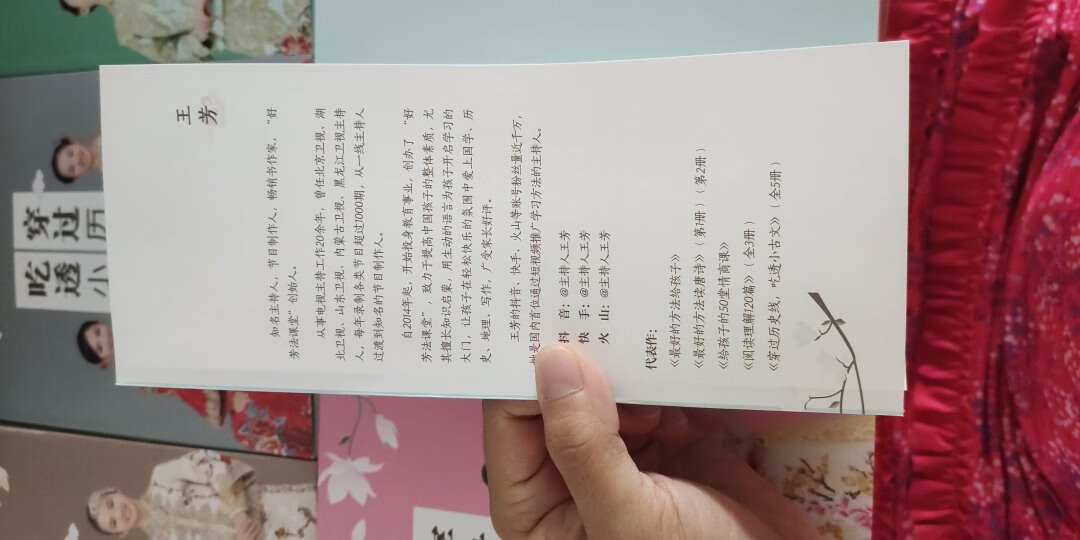 王芳
知名主持人，节目制作人，畅销书作家，“好
芳法课堂”创始人。
从事电视主持工作20余年，曾任北京卫视、湖
北卫视、山东卫视、内蒙古卫视、黑龙江卫视主持
人，每年录制各类节目超过1000期，从一线主持人
过渡到知名的节目制作人。
自2014年起，开始投身教育事业，创办了“好
芳法课堂”，致力于提高中国孩子的整体素质，尤
其擅长知识启蒙，用生动的语言为孩子开启学习的
大门，让孩子在轻松快乐的氛围中爱上国学、历
史、地理、写作，广受家长好评。
王芳的抖音、快手、火山等账号粉丝量近千万，
她是国内首位通过短视频推广学习方法的主持人。
抖 音：@主持人王芳
快 手：@主持人王芳
火 山：@主持人王芳
代表作：
《最好的方法给孩子》
《最好的方法读唐诗》（第1册）（第2册）
《给孩子的50堂情商课》
《阅读理解120篇》（全3册）
《穿过历史线，吃透小古文》（全5册）
穿过历
吃透小